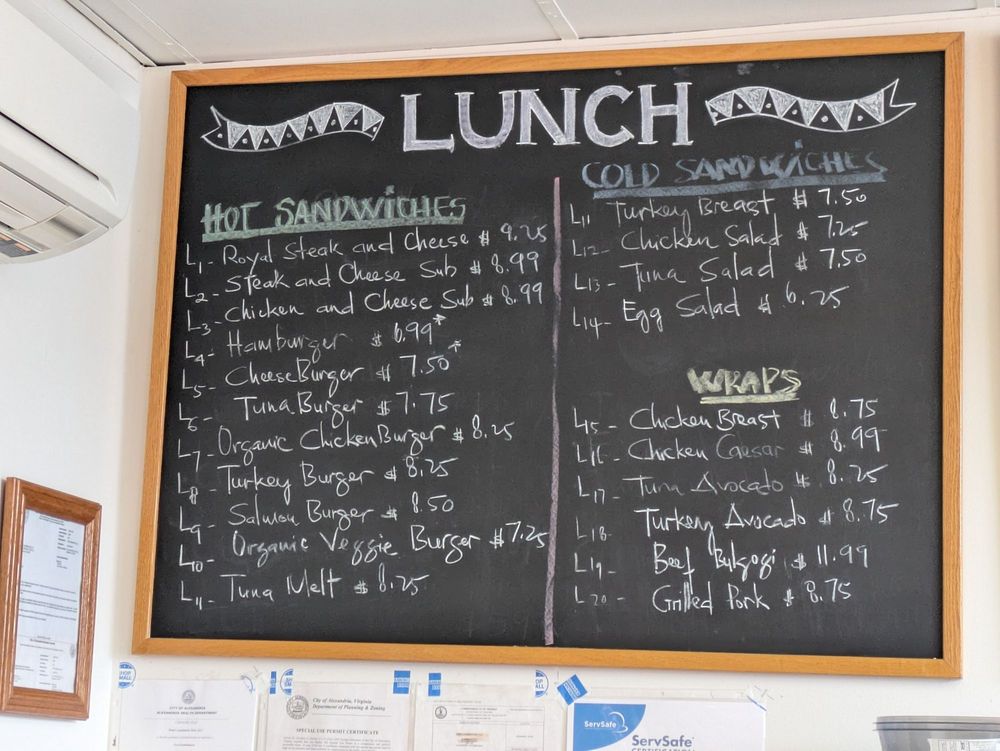 LUNCH
HOT SANDWICHES
L1- Royal Steak and Cheese $ 9.25
L2- Steak and Cheese Sub $ 8.99
L3- Chicken and Cheese Sub $ 8.99
L4- Hamburger $ 6.99*
L5- CheeseBurger $ 7.50*
L6- Tuna Burger $ 7.75
L7- Organic Chicken Burger $ 8.25
L8- Turkey Burger $ 8.25
L9- Salmon Burger $ 8.50
L10- Organic Veggie Burger $7.25
L11- Tuna Melt $ 8.25
COLD SANDWICHES
L11 Turkey Breast $ 7.50
L12- Chicken Salad $ 7.25
L13- Tuna Salad $ 7.50
L14- Egg Salad $ 6.25
WRAPS
L15- Chicken Breast $ 8.75
L16- Chicken Caesar $ 8.99
L17- Tuna Avocado $ 8.25
L18- Turkey Avocado $ 8.75
L19- Beef Bulgogi $ 11.99
L20- Grilled Pork $ 8.75
CITY OF ALEXANDRIA
ALEXANDRIA HEALTH DEPARTMENT
City of Alexandria, Virginia
Department of Planning & Zoning
SPECIAL USE PERMIT CERTIFICATE
ServSafe
ServSafe
CERTIFICATION